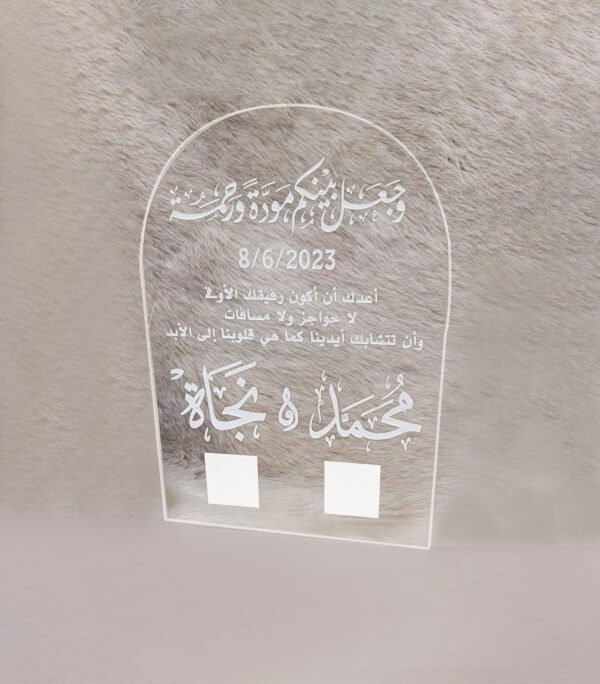 وَجَعَلَ بَيْنَكُم مَوَدَّةً وَرَحْمَةً
8/6/2023
أعدك أن أكون رفيقك الأوفى
لا حواجز ولا مسافات
وأن تتشابك أيدينا كما هي قلوبنا إلى الأبد
مُحَمَّد و نَجَاة